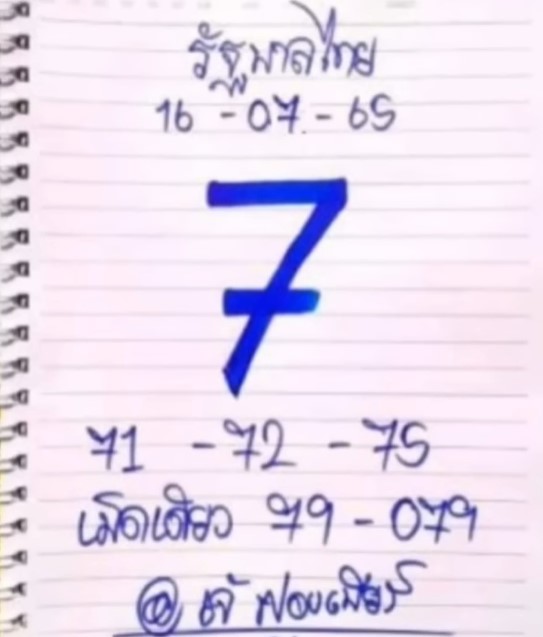 รัฐบาลไทย
16 - 07 - 65
7
71 - 72 - 75
เม็ดเดียว 79 - 079
@ เจ้